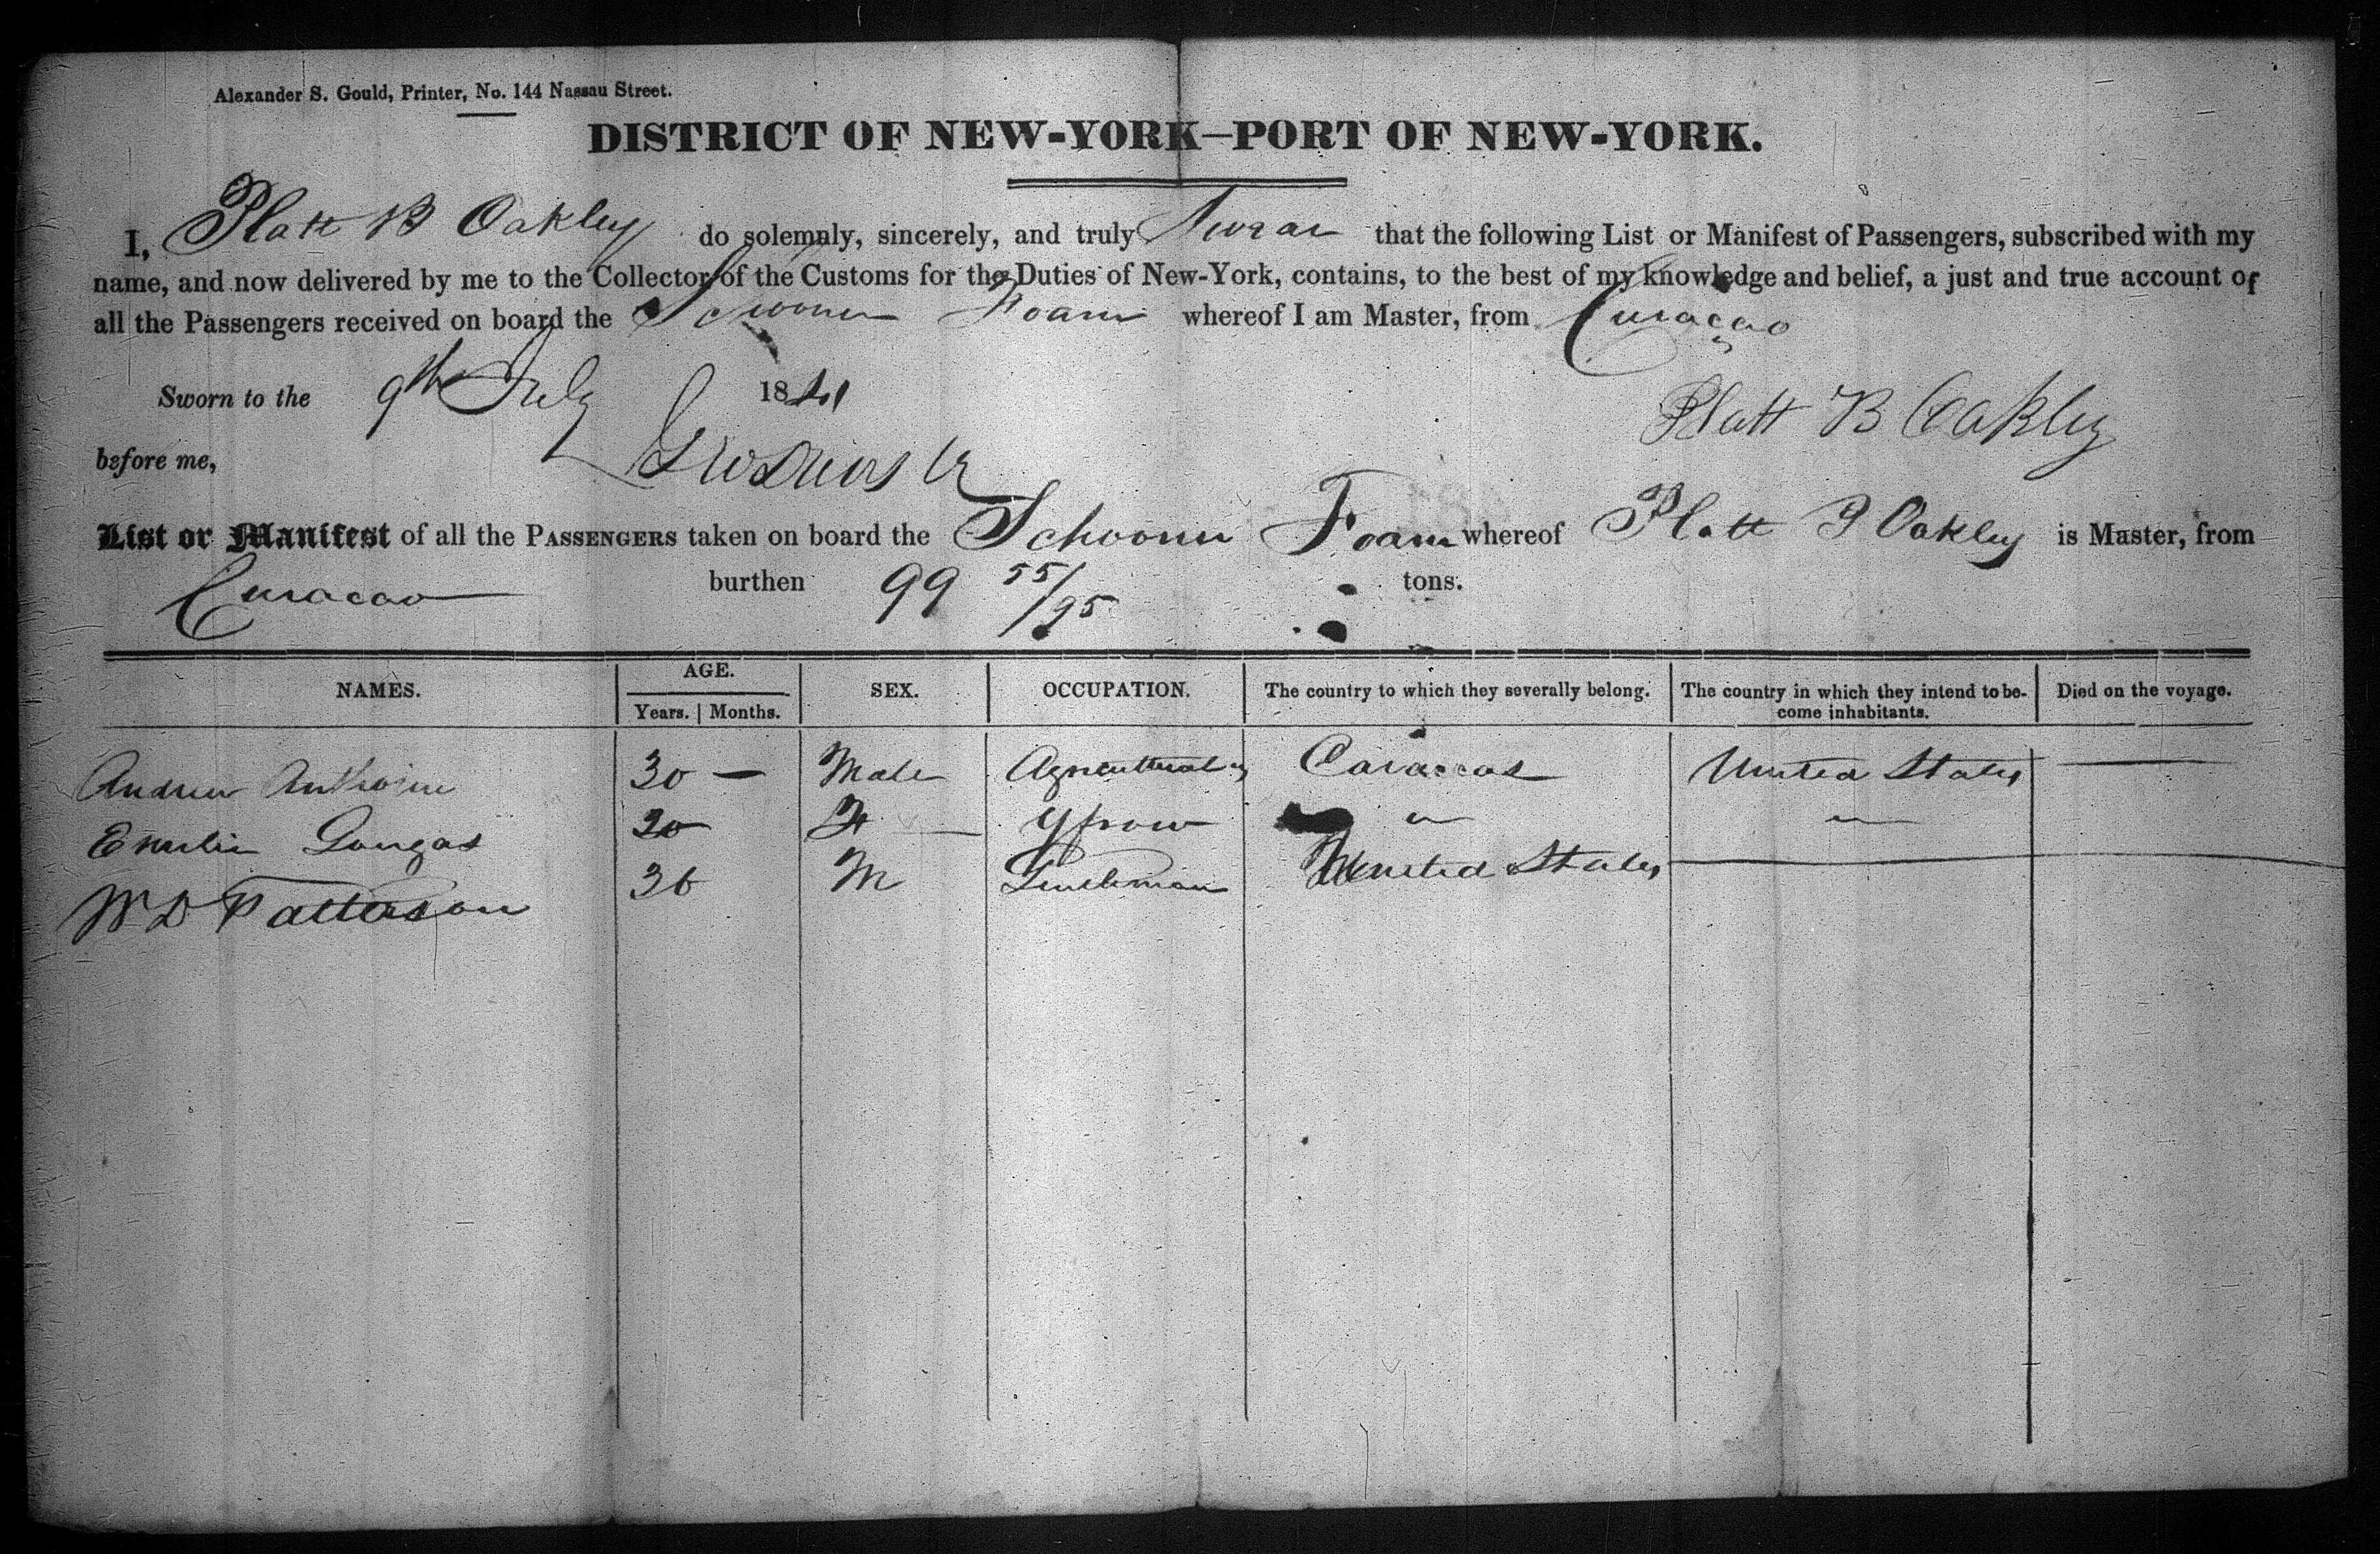 Alexander S. Gould, Printer, No. 144 Nassau Street.
DISTRICT OF NEW-YORK—PORT OF NEW-YORK.
I, Platt B Oakley do solemnly, sincerely, and truly Swear that the following List or Manifest of Passengers, subscribed with my
name, and now delivered by me to the Collector of the Customs for the Duties of New-York, contains, to the best of my knowledge and belief, a just and true account of
all the Passengers received on board the Schooner Foam whereof I am Master, from Curaçao
Sworn to the 9th July 1841
Platt B Oakley
before me,
List or Manifest of all the PASSENGERS taken on board the Schooner Foam whereof Platt B Oakley is Master, from
Curacao burthen 99 55/95 tons.
NAMES. AGE. SEX. OCCUPATION. The country to which they severally belong. The country in which they intend to become inhabitants. Died on the voyage.
Years. Months.
Andrew 30 — Male Agricultural Caraccas United States —
Emelie 20 F — " "
W D Patterson 36 M Gentleman United States —